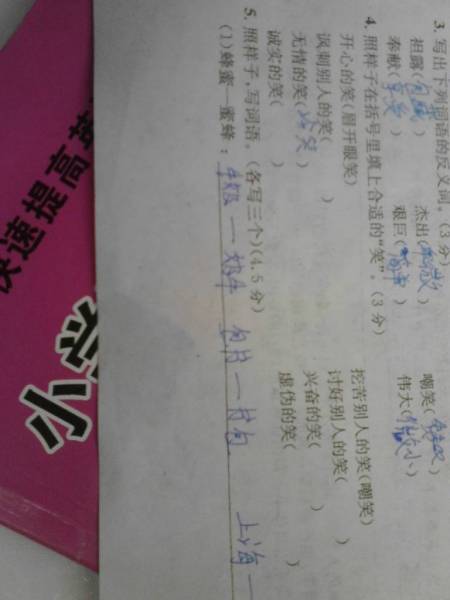 3. 写出下列词语的反义词。(3分)
袒露( ) 杰出( ) 嘲笑( )
奉献(享受) 艰巨(简单) 伟大( 小)
4. 照样子在括号里填上合适的“笑”。(3分)
开心的笑(眉开眼笑) 挖苦别人的笑(嘲笑)
讽刺别人的笑( ) 讨好别人的笑( )
无情的笑( 笑) 兴奋的笑( )
诚实的笑( ) 虚伪的笑( )
5. 照样子,写词语。(各写三个)(4.5分)
(1)蜂蜜—蜜蜂: 牛奶—奶牛 上海—
速提高英
小学